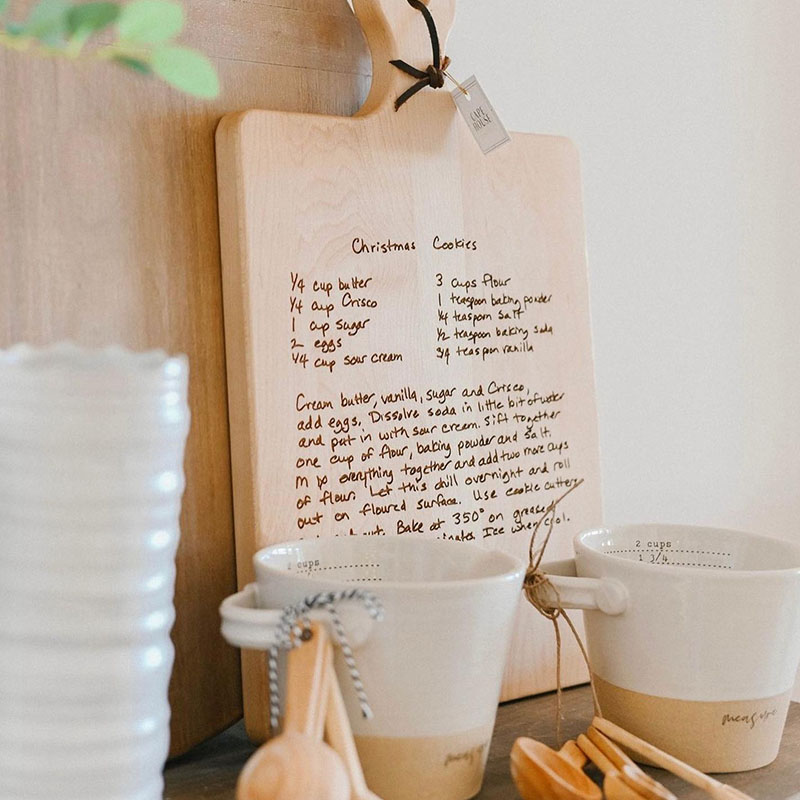 CAPE
HOUSE
Christmas Cookies
1/4 cup butter
1/4 cup Crisco
1 cup sugar
2 eggs
1/4 cup sour cream
3 cups flour
1 teaspoon baking powder
1/4 teaspoon salt
1/2 teaspoon baking soda
3/4 teaspoon vanilla
Cream butter, vanilla, sugar and Crisco,
add eggs. Dissolve soda in little bit of water
and put in with sour cream. Sift together
one cup of flour, baking powder and salt.
Mix everything together and add two more cups
of flour. Let this chill overnight and roll
out on floured surface. Use cookie cutters
out. Bake at 350° on greased
Ice when cool.
2 cups
2 cups
1 3/4
measure
measure